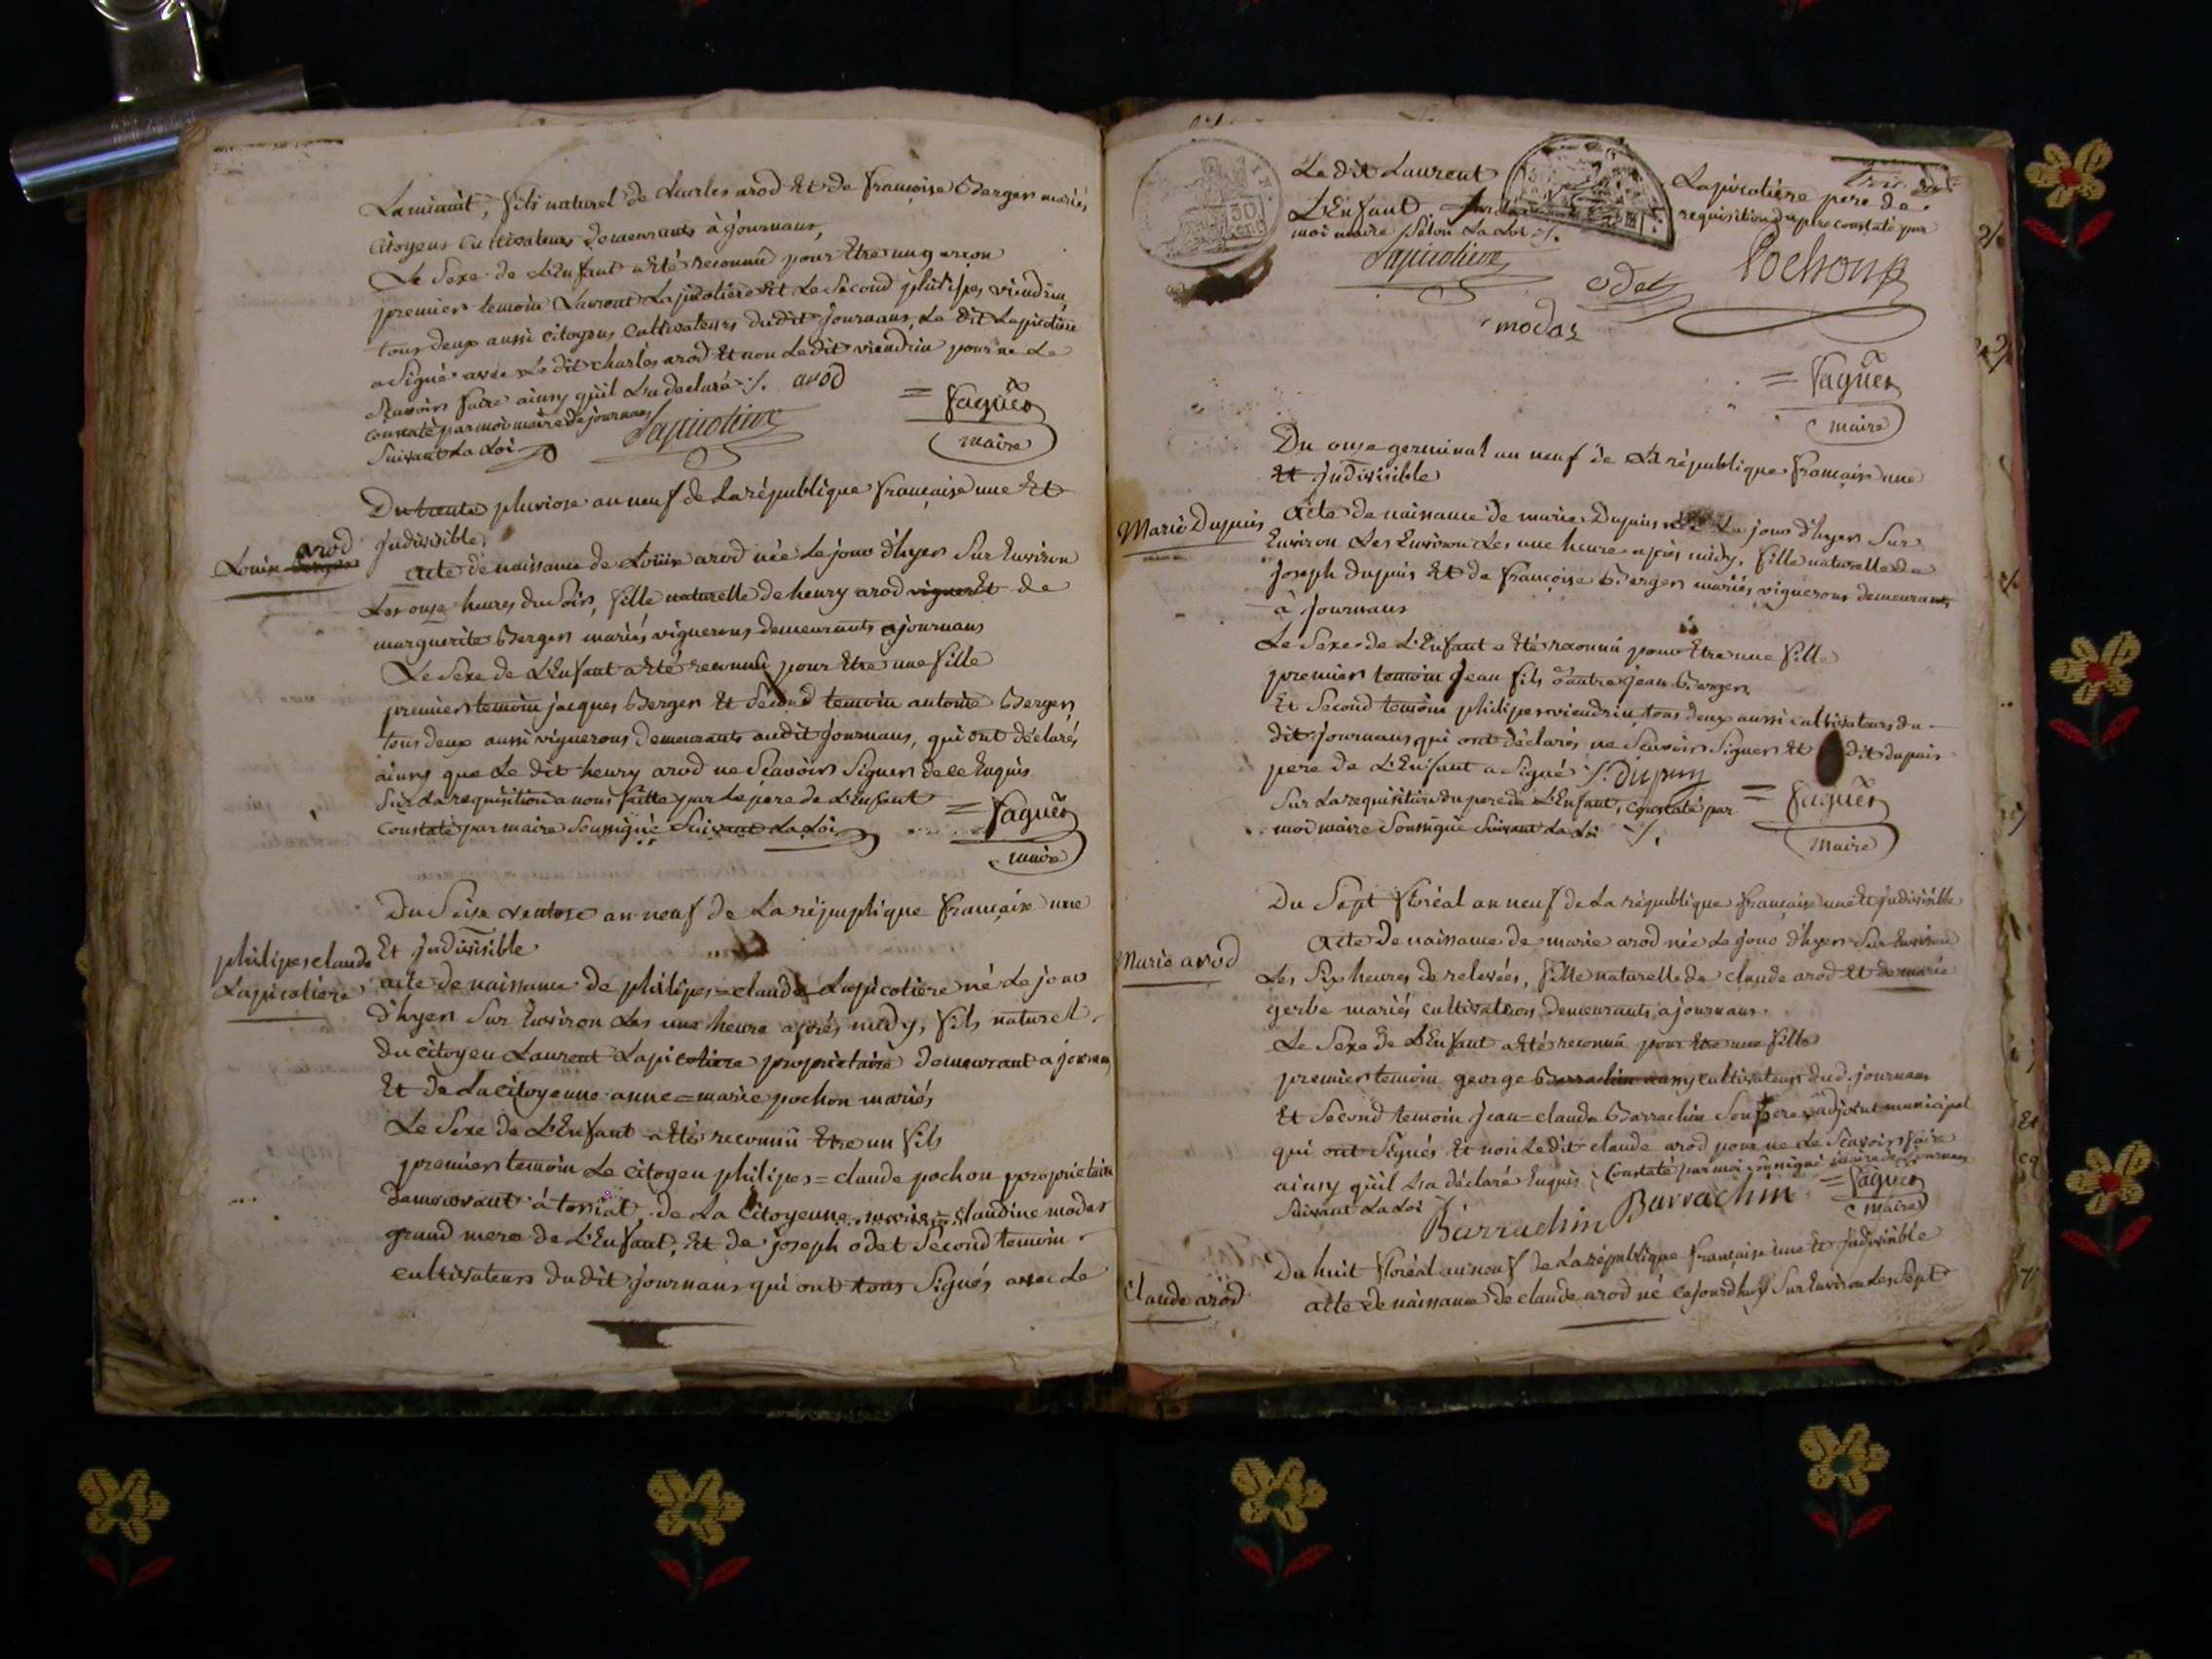 La minuit, fils naturel de Charles arod Et de françoise Berger mariés
citoyens cultivateurs demeurants à journans,
Le Sexe de L'Enfant a Eté reconnû pour Etre un garçon
premier temoin Laurent Lapicotiere Et Le Second philipes viendrin
tous deux aussi citoyens cultivateurs dudit journans, Le dit Lapicotiere
a Signé avec Le dit charles arod Et non Le dit viendrin pour ne Le
Sçavoir faire ainsy qu'il L'a declaré ./. arod
constaté par moi maire de journans
Suivant La Loi
Lapicotiere
= faguer
maire
Du trente pluviose an neuf de La république française une Et
Louise arod
indivisible,
acte de naissance de Loüise arod née Le jour d'hyer Sur Environ
Les onze heures du Soir, fille naturelle de henry arod vigneron Et de
marguerite Berger mariés vignerons demeurants a journans
Le Sexe de L'Enfant a Eté reconnû pour Etre une fille
premier temoin jacques Berger Et Second temoin antoine Berger
tous deux aussi vignerons demeurants audit journans, qui ont déclarés
ainsy que Le dit henry arod ne Sçavoir Signer de ce Enquis
Sur La requisition a nous faitte par Le pere de L'Enfant
constaté par maire Soussigné Suivant La Loi
= faguer
maire
Du Seize ventose an neuf de La république française une
philipes claude
Lapicotiere
Et indivisible
acte de naissance de philipes=claude Lapicotiere né Le jour
d'hyer Sur Environ Les une heure aprés midy, fils naturel
du citoyen Laurent Lapicotiere proprietaire demeurant a journans
Et de La citoyenne anne=marie pochon mariés
Le Sexe de L'Enfant a Eté reconnû Etre un fils
premier temoin Le citoyen philipes=claude pochon proprietaire
demeurant à tossiat de La citoyenne marie=claudine modas
grand mere de L'Enfant, Et de joseph odet Second temoin
cultivateurs dudit journans qui ont tous Signés avec Le
Le dit Laurent Lapicotiere pere de
L'Enfant requisition du pere constaté par
moi maire Selon La Loi ./.
Lapicotiere
odet
Pochon
modas
= faguer
maire
Du onze germinal an neuf de La république française une
Et indivisible
Marie Dupuis
acte de naissance de marie Dupuis Le jour d'hyer Sur
Environ Les Environ Les une heure aprés midy, fille naturelle de
joseph dupuis Et de françoise Berger mariés vignerons demeurants
à journans
Le Sexe de L'Enfant a Eté reconnû pour Etre une fille
premier temoin jean fils d'autre jean Berger,
Et Second temoin philipes viendrin, tous deux aussi cultivateurs du
dit journans qui ont déclarés ne Sçavoir Signer Et dit dupuis
pere de L'Enfant a Signé J. dupuy
Sur La requisition du pere de L'Enfant, constaté par
moi maire Soussigné Suivant La Loi ./.
= faguer
maire
Du Sept floréal an neuf de La république française une Et indivisible
Marie arod
acte de naissance de marie arod née Le jour d'hyer Sur Environ
Les Six heures de relevées, fille naturelle de claude arod Et de marie
gerbe mariés cultivateurs demeurants a journans
Le Sexe de L'Enfant a Eté reconnû pour Etre une fille
premier temoin george Barrachin aussy cultivateur dud. journans
Et Second temoin jean=claude Barrachin Son frere adjoint municipal
qui ont Signés Et non Le dit claude arod pour ne Le Sçavoir faire
ainsy qu'il L'a déclaré Enquis ; Constaté par moi soussigné maire de journans
Suivant La Loi ./.
Barrachin Barrachin
= faguer
maire
Du huit floréal an neuf de La république française une Et indivisible
Claude arod
acte de naissance de claude arod né cejourd'huy Sur Environ Les Sept